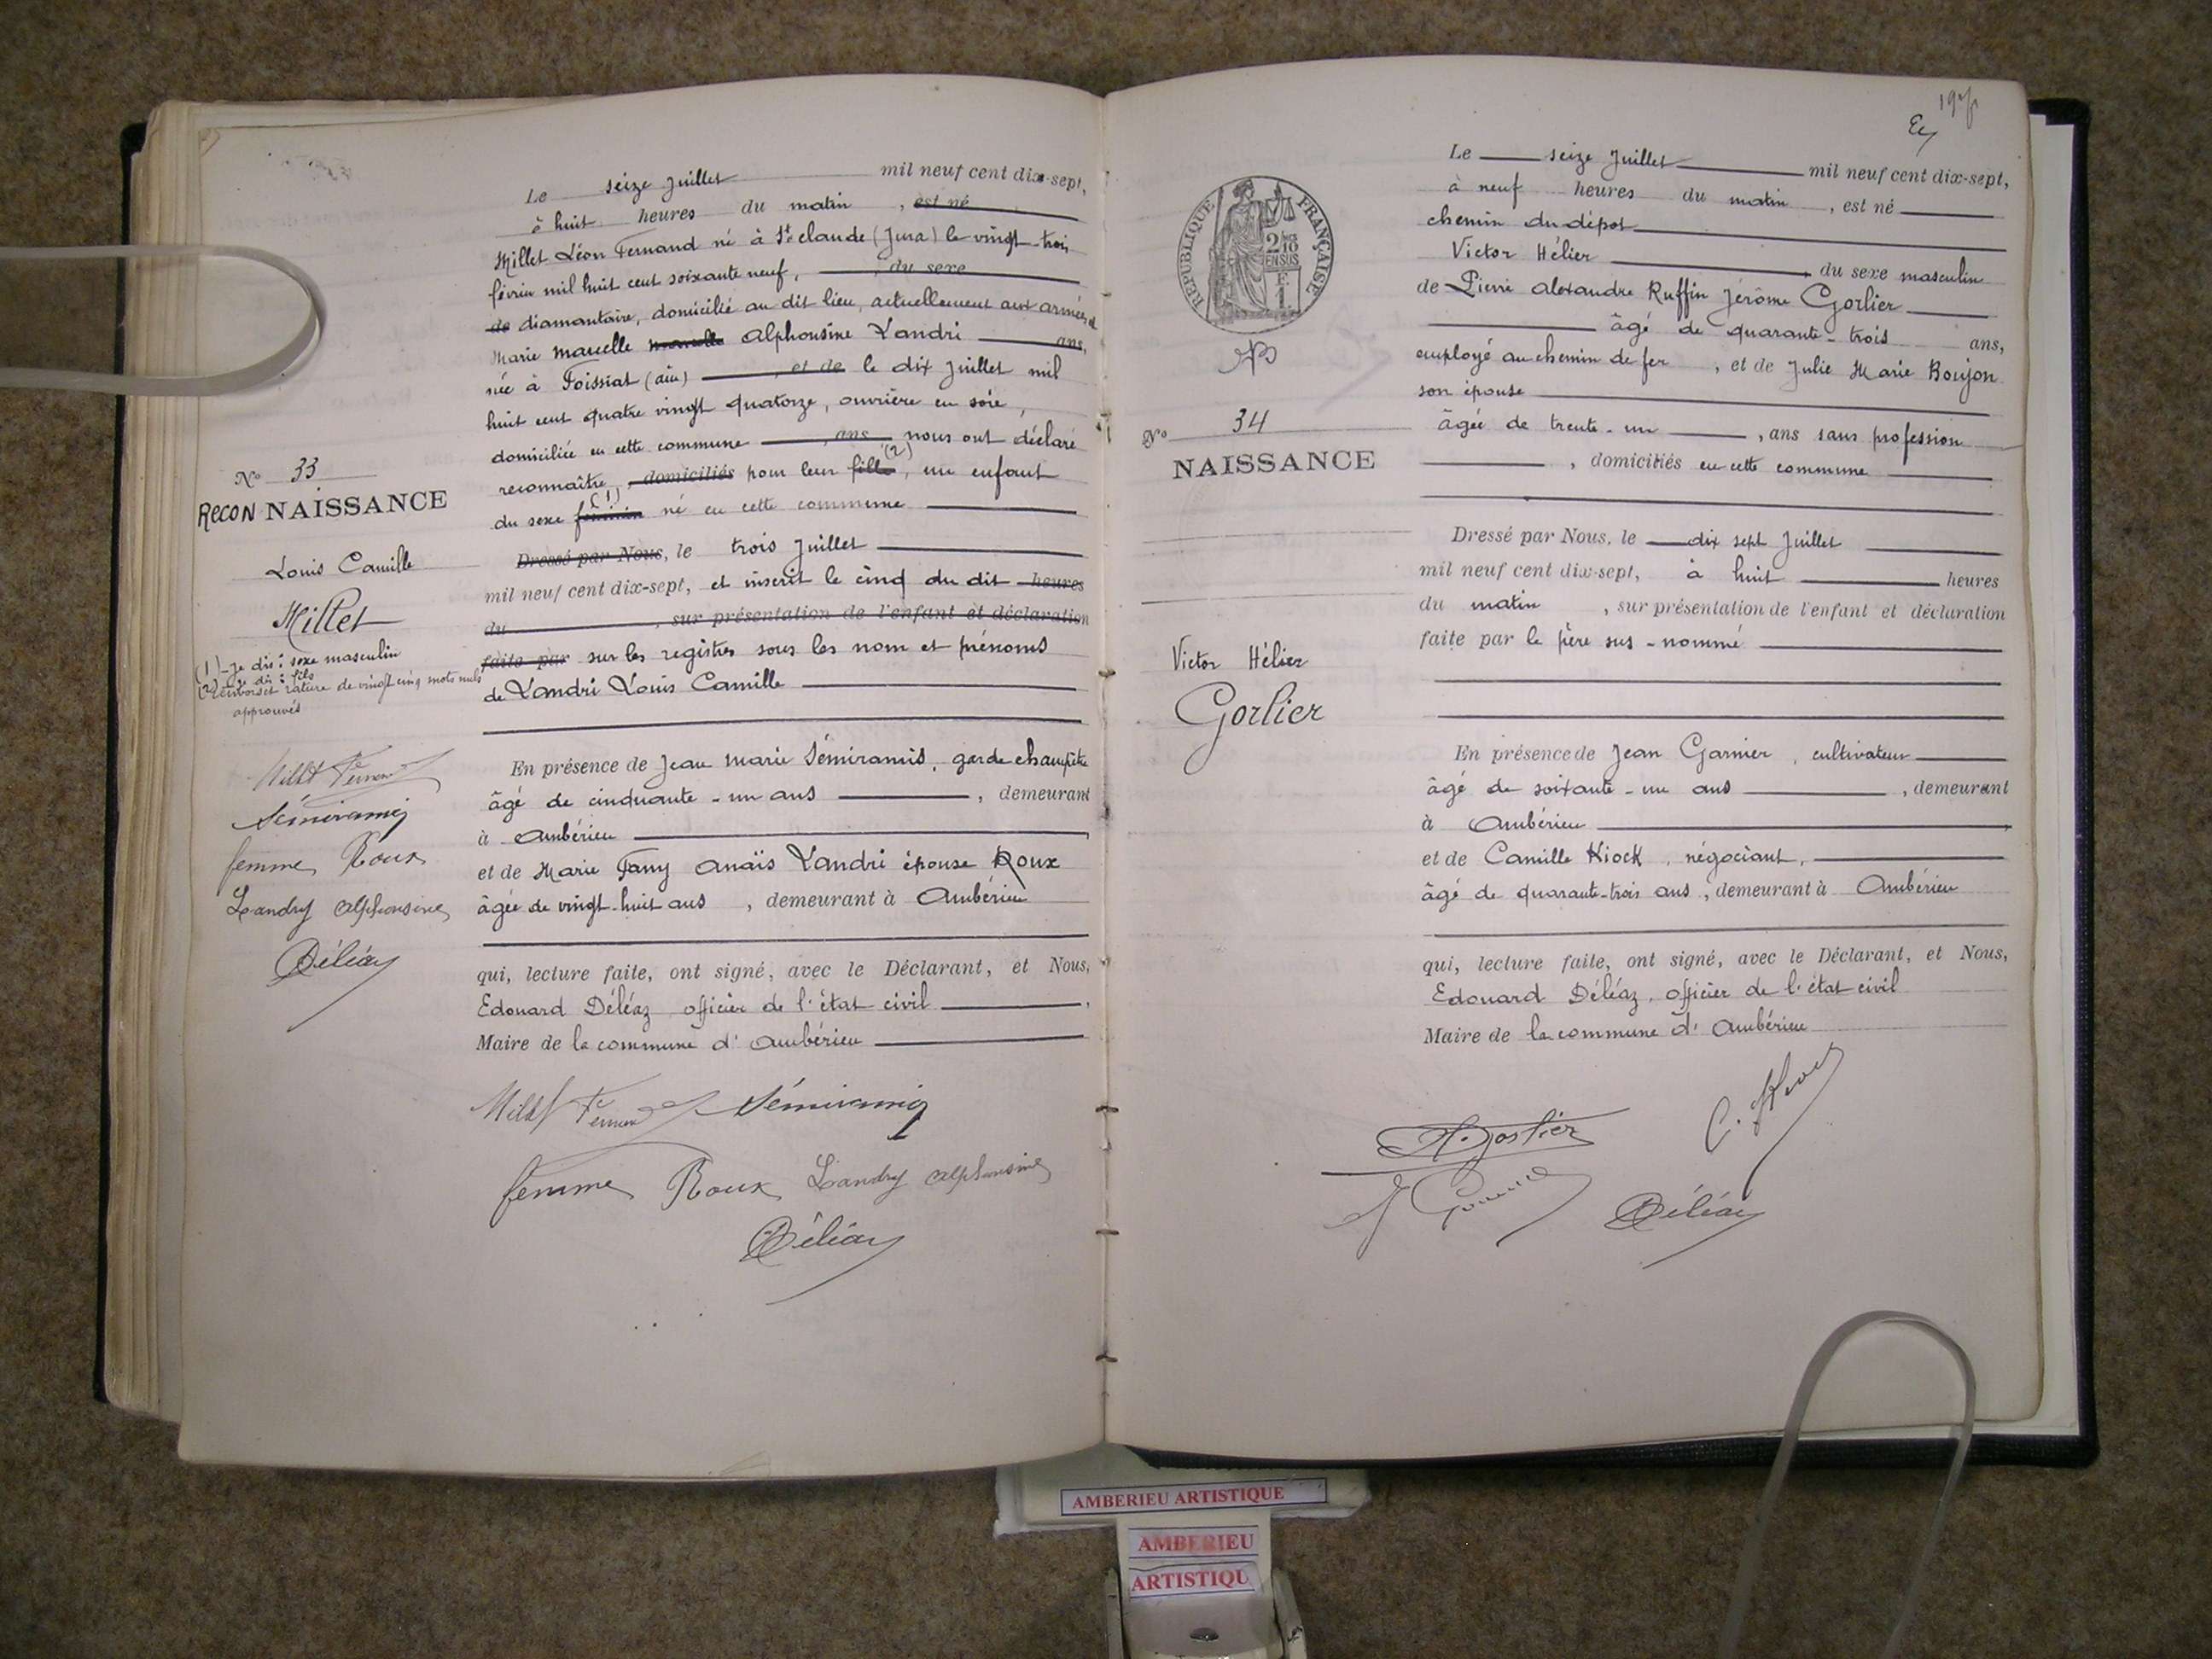 Le seize Juillet mil neuf cent dix-sept,
à huit heures du matin, est né
Millet Léon Fernand né à St Claude (Jura) le vingt-trois
février mil huit cent soixante neuf, du sexe
de diamantaire, domicilié au dit lieu, actuellement aux armées et
Marie Marcelle Marcelle Alphonsine Landri ans,
née à Foissiat (Ain) et de le dix Juillet mil
huit cent quatre vingt quatorze, ouvrière en soie,
domiciliée en cette commune, ans nous ont déclaré
reconnaître, domiciliés pour leur fille (2), un enfant
du sexe féminin (1) né en cette commune
Dressé par Nous, le trois Juillet
mil neuf cent dix-sept, et inscrit le cinq du dit heures
du, sur présentation de l'enfant et déclaration
faite par sur les registres sous les nom et prénoms
de Landri Louis Camille
En présence de Jean Marie Sémiramis, garde champêtre
âgé de cinquante-un ans, demeurant
à Ambérieu
et de Marie Fany Anaïs Landri épouse Roux
âgée de vingt-huit ans, demeurant à Ambérieu
qui, lecture faite, ont signé, avec le Déclarant, et Nous,
Edouard Déléaz officier de l'état civil,
Maire de la commune d'Ambérieu
Millet Fernand Sémiramis
femme Roux Landry Alphonsine
Déléaz
N° 33
RECONNAISSANCE
Louis Camille
Millet
(1) Je dis : sexe masculin
(2) Je dis : fils
Renvois et rature de vingt cinq mots nuls
approuvés
Millet Fernand
Sémiramis
femme Roux
Landry Alphonsine
Déléaz
RÉPUBLIQUE FRANÇAISE
N° 34
NAISSANCE
Victor Hélier
Gorlier
Le seize Juillet mil neuf cent dix-sept,
à neuf heures du matin, est né
chemin du dépot
Victor Hélier, du sexe masculin
de Pierre Alexandre Ruffin Jérôme Gorlier
âgé de quarante-trois ans,
employé au chemin de fer, et de Julie Marie Boujon
son épouse
âgée de trente-un, ans sans profession
, domiciliés en cette commune
Dressé par Nous, le dix sept Juillet
mil neuf cent dix-sept, à huit heures
du matin, sur présentation de l'enfant et déclaration
faite par le père sus-nommé
En présence de Jean Garnier, cultivateur
âgé de soixante-un ans, demeurant
à Ambérieu
et de Camille Kiock, négociant,
âgé de quarante-trois ans, demeurant à Ambérieu
qui, lecture faite, ont signé, avec le Déclarant, et Nous,
Edouard Déléaz, officier de l'état civil
Maire de la commune d'Ambérieu
Gorlier
Déléaz
AMBERIEU ARTISTIQUE
AMBERIEU
ARTISTIQU